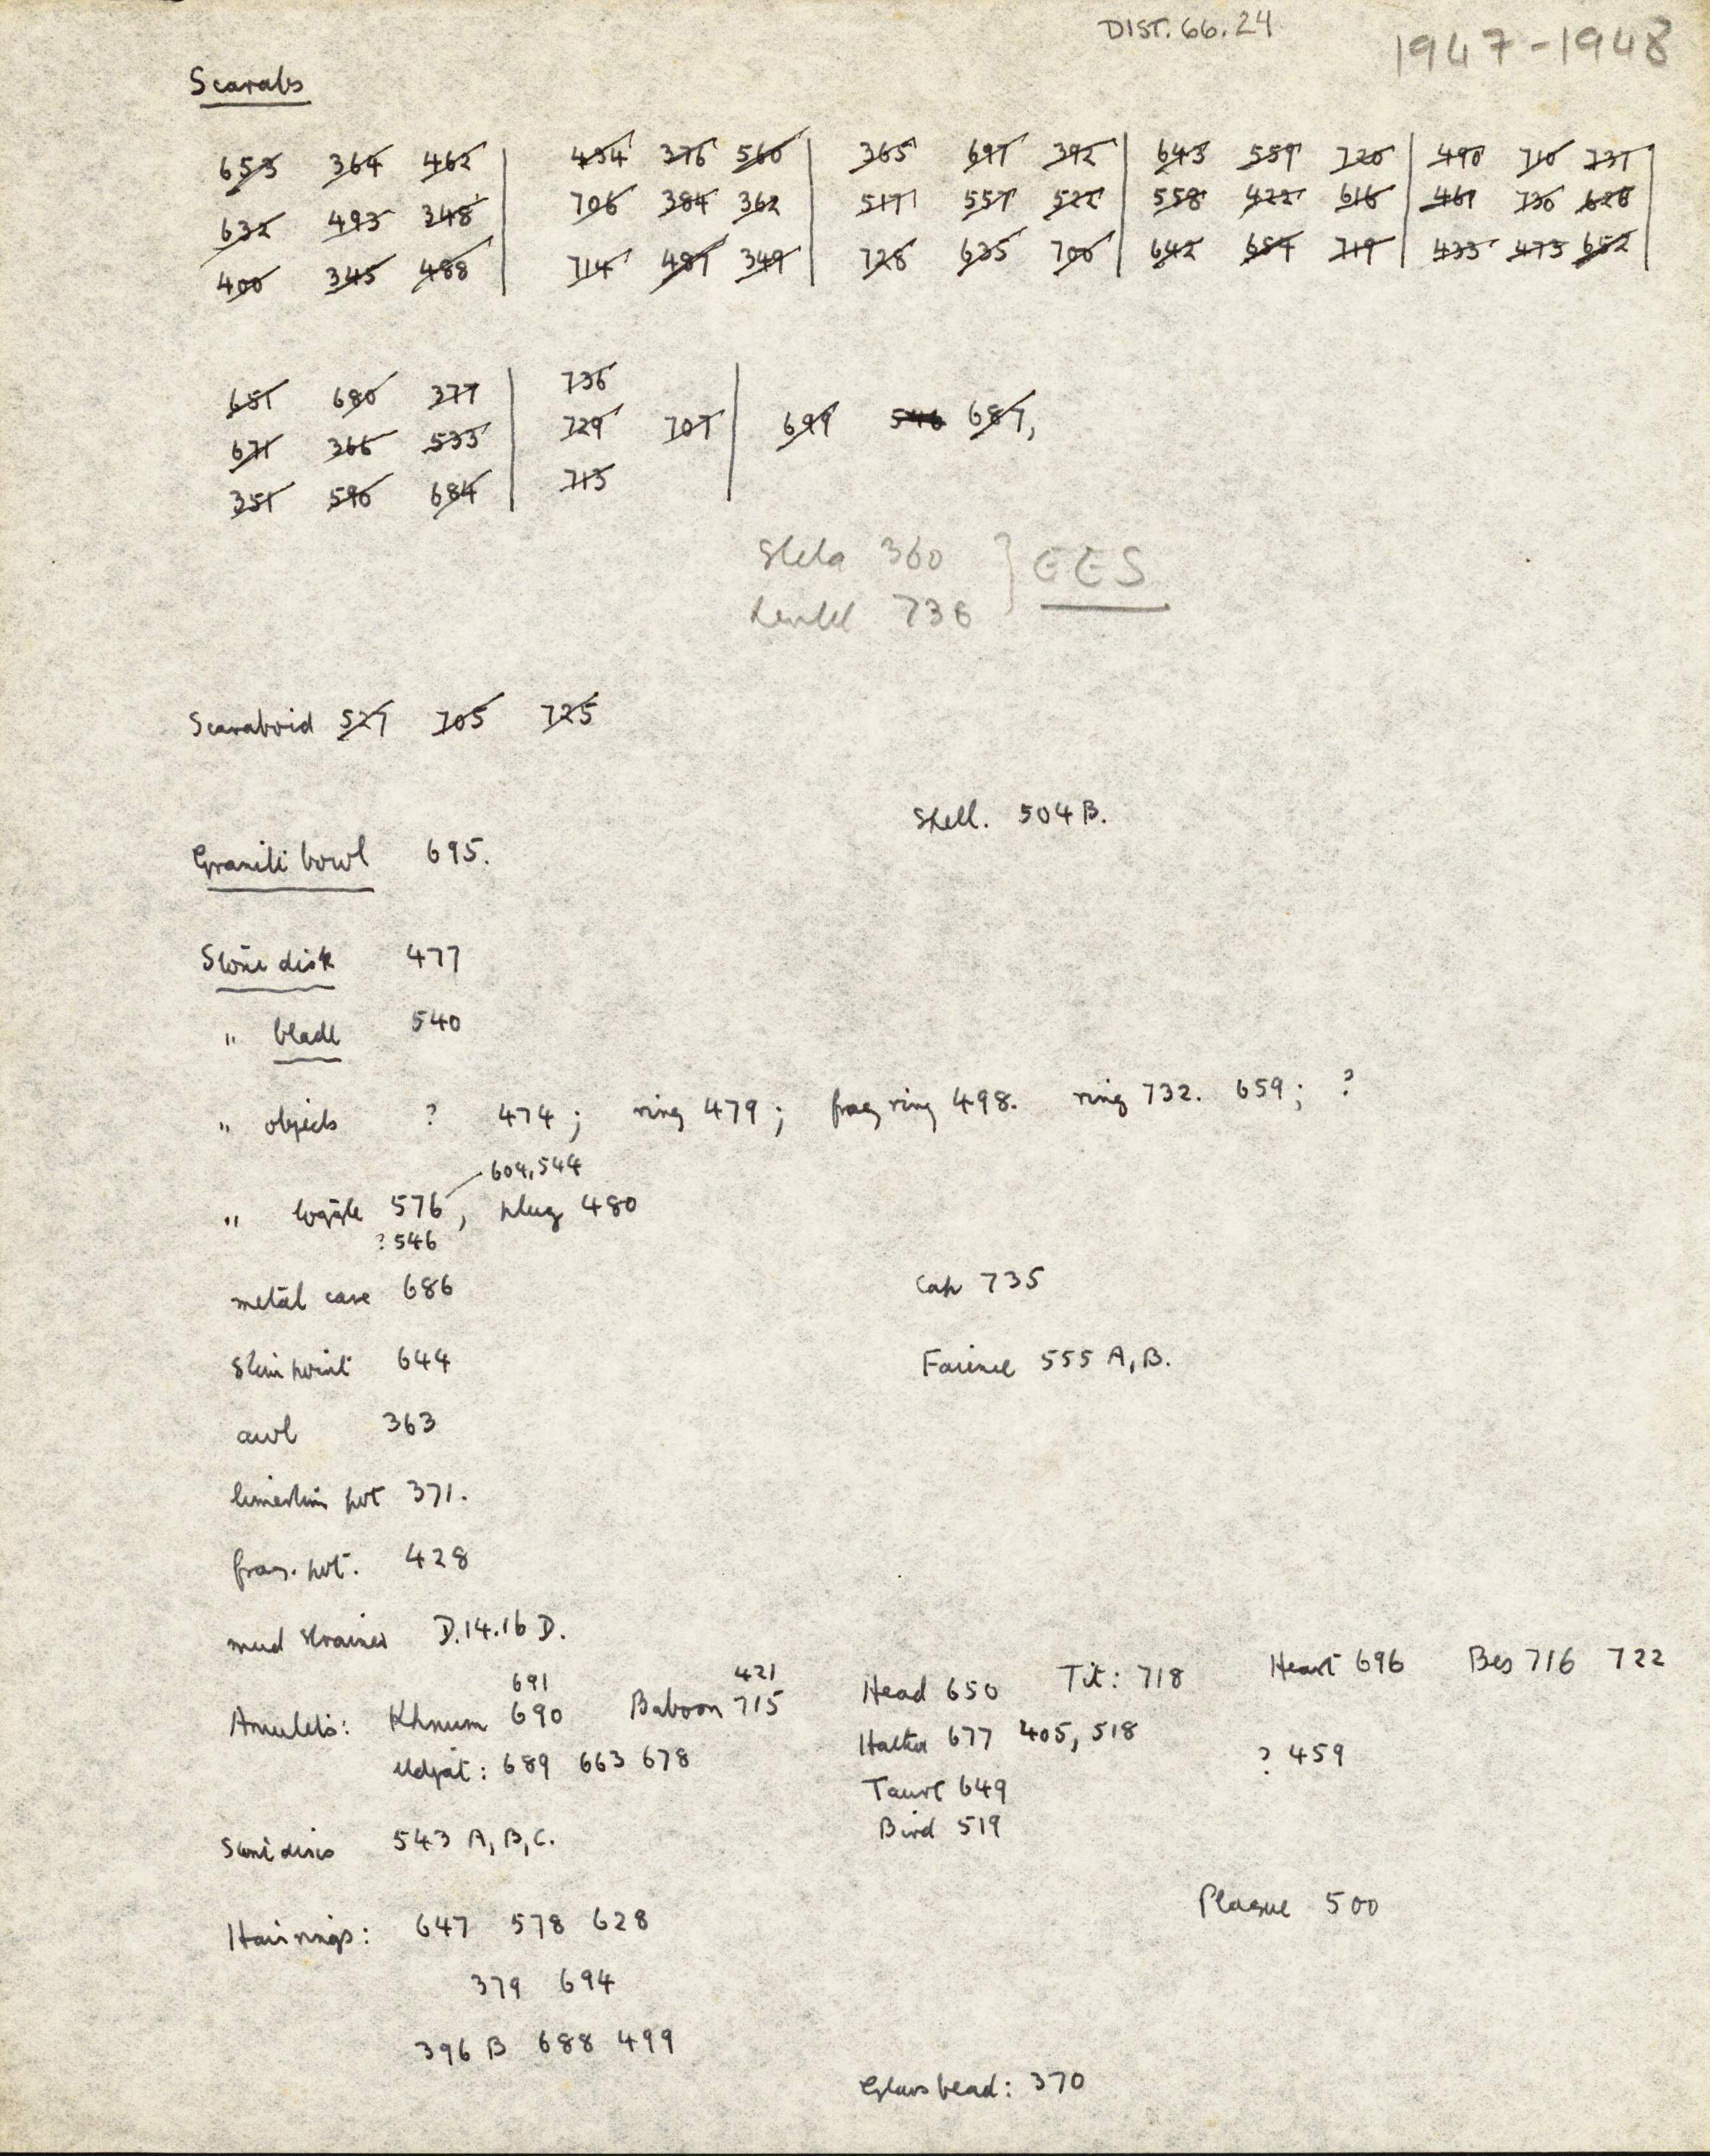 DIST. 66.24
1947-1948
Scarabs
653 364 462 | 434 376 560 | 365 697 392 | 643 559 720 | 490 710 737
632 493 348 | 706 384 362 | 517 557 522 | 558 422 616 | 467 730 628
400 345 488 | 714 487 349 | 728 635 700 | 642 654 719 | 433 473 652
681 680 377 | 736
671 366 533 | 729 707 | 699 546 687,
351 590 684 | 713
Stela 360 } EES
Lintel 738
Scaraboid 527 705 725
Shell. 504 B.
Granite bowl 695.
Stone disk 477
" blade 540
" objects ? 474; ring 479; frag ring 498. ring 732. 659; ?
604, 544
" toggle 576, plug 480
? 546
metal case 686
Cap 735
644
Faience 555 A, B.
awl 363
limestone pot 371.
frag. pot. 428
mud strainer D.14.16 D.
691 421
Amulets: Khnum 690 Baboon 715 Head 650 Tit: 718 Heart 696 Bes 716 722
Udjat: 689 663 678 Hathor 677 405, 518 ? 459
Taurt 649
Bird 519
Stone discs 543 A, B, C.
Plaque 500
Hairrings: 647 578 628
379 694
396 B 688 499
Glass bead: 370